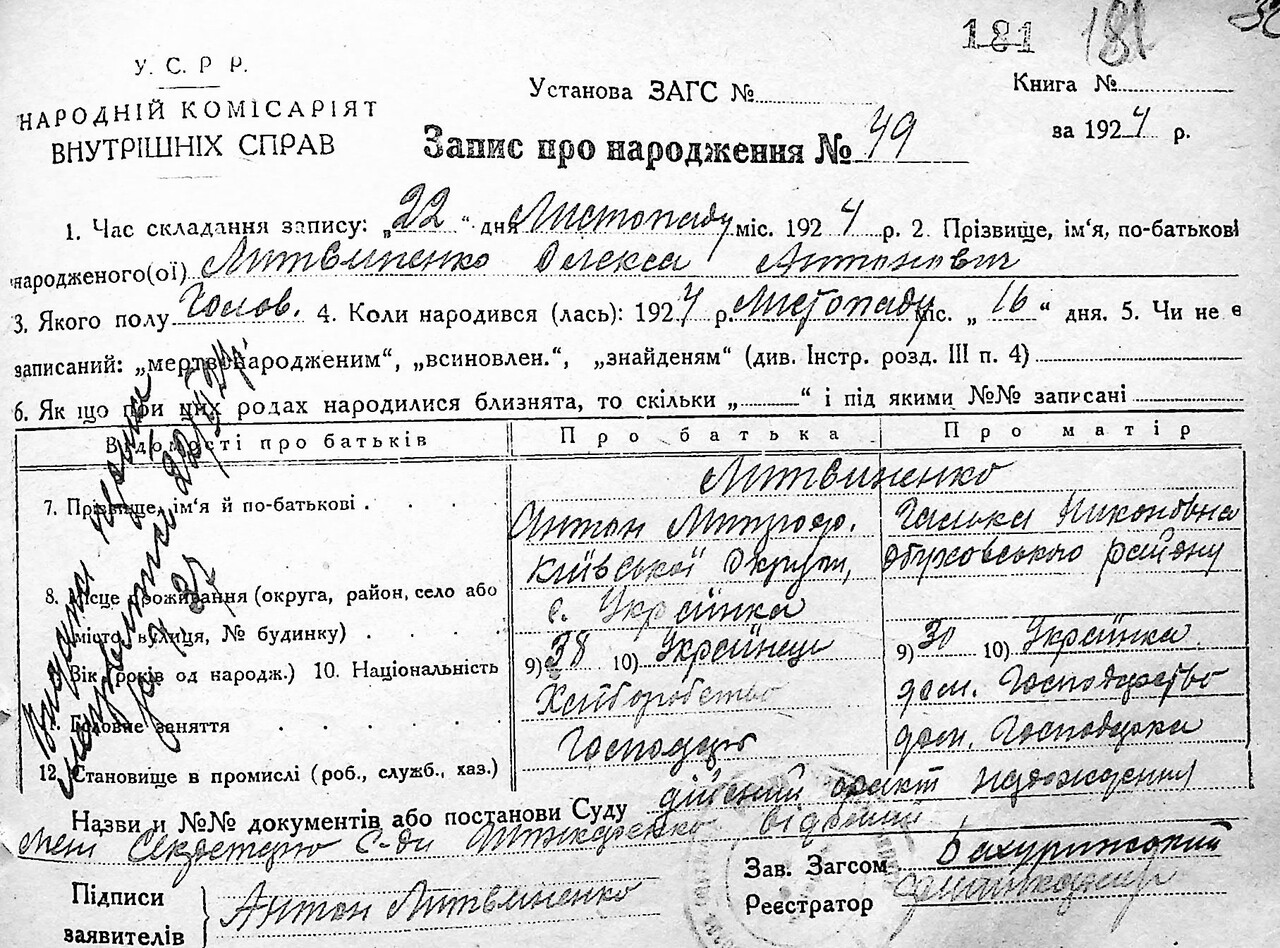 181 181
У. С. Р Р.
НАРОДНІЙ КОМІСАРІЯТ
ВНУТРІШНІХ СПРАВ
Установа ЗАГС №
Книга №
за 1924 р.
Запис про народження № 49
1. Час складання запису: „22“ дня Листопаду міс. 1924 р. 2. Прізвище, ім'я, по-батькові
народженого(ої) Литвиненко Олекса Антонович
3. Якого полу Голов. 4. Коли народився (лась): 1924 р. Листопаду міс. „16“ дня. 5. Чи не є
записаний: „мертвонародженим“, „всиновлен.“, „знайденям“ (див. Інстр. розд. III п. 4)
6. Як що при цих родах народилися близнята, то скільки „ “ і під якими №№ записані
Відомості про батьків Про батька Про матір
Литвиненко
7. Прізвище, ім'я й по-батькові Антон Митроф. Галька Никонівна
Київської Округи, Обуховського району
8. Місце проживання (округа, район, село або с. Українка
місто, вулиця, № будинку)
9) 38 10) Українець 9) 30 10) Українка
Вік (років од народж.) 10. Національність
Хліборобство дом. Господарство
Головне заняття
Господарь дом. Господарка
12. Становище в промислі (роб., служб., хаз.)
Назви и №№ документів або постанови Суду дійсний факт
мені Секретарю С-ди відомий
Зав. Загсом
Підписи
заявителів Антон Литвиненко
Реєстратор